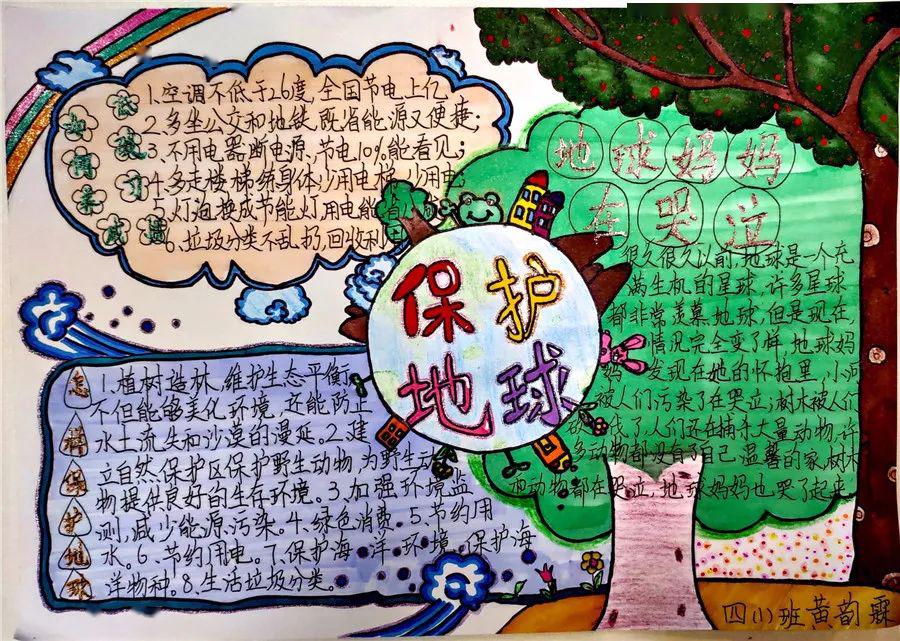 1.空调不低于26度,全国节电上亿
2.多坐公交和地铁,既省能源又便捷;
3、不用电器断电源、节电10%能看见;
4.多走楼梯练身体,少用电梯,少用电
5.灯泡换成节能灯,用电能省
6.垃圾分类不乱扔,回收利用
地球妈妈
在哭泣
很久很久以前,地球是一个充
满生机的星球,许多星球
都非常羡慕地球,但是现在,
情况完全变了样,地球妈
妈发现在她的怀抱里,小河
被人们污染了在哭泣;树木被人们
砍伐了,人们还在捕杀大量动物,许
多动物都没有了自己温馨的家,树木
动物都在哭泣,地球妈妈也哭了起来
保护
地球
怎样保护地球
1.植树造林,维护生态平衡
不但能够美化环境,还能防止
水土流失和沙漠的漫延。2.建
立自然保护区保护野生动物,为野生动
物提供良好的生存环境。3、加强环境监
测,减少能源污染。4、绿色消费。5、节约用
水。6、节约用电。7、保护海洋环境,保护海
洋物种。8、生活垃圾分类。
四(1)班黄韵霖